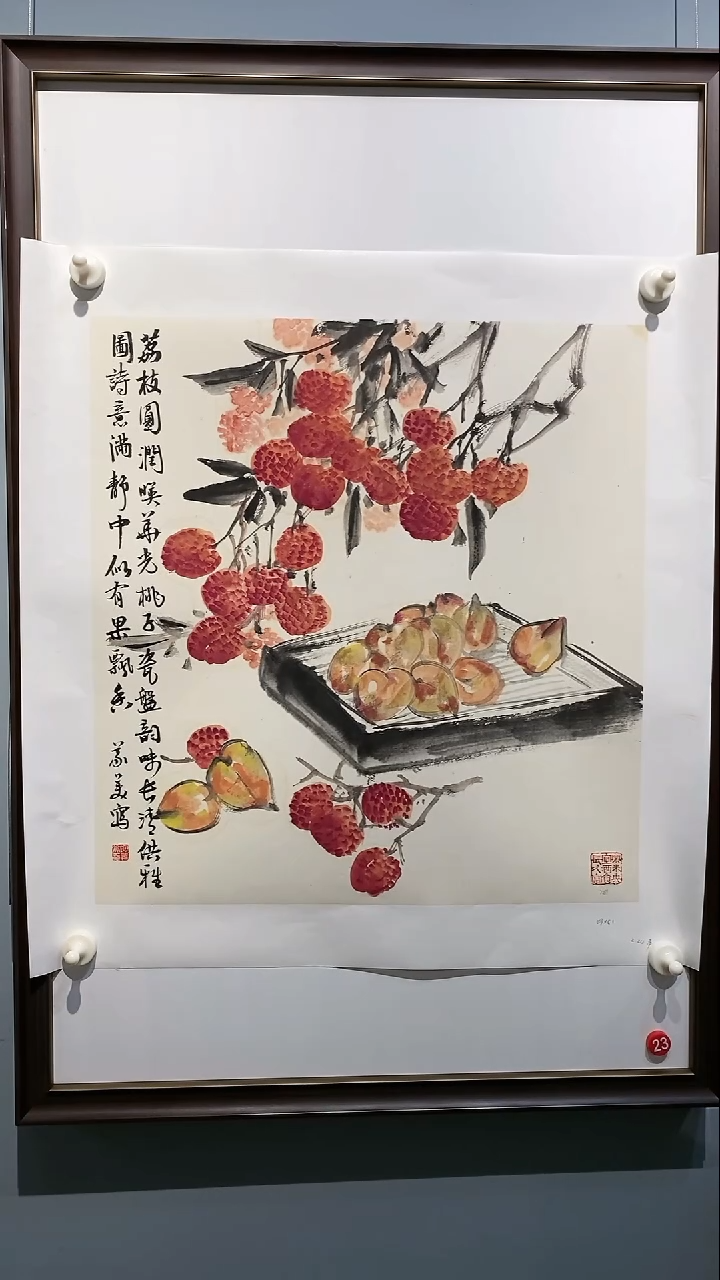 荔枝圓潤暎華光桃子瓷盤韵味長清供雅
圖詩意滿靜中似有果飄香
美寫
23